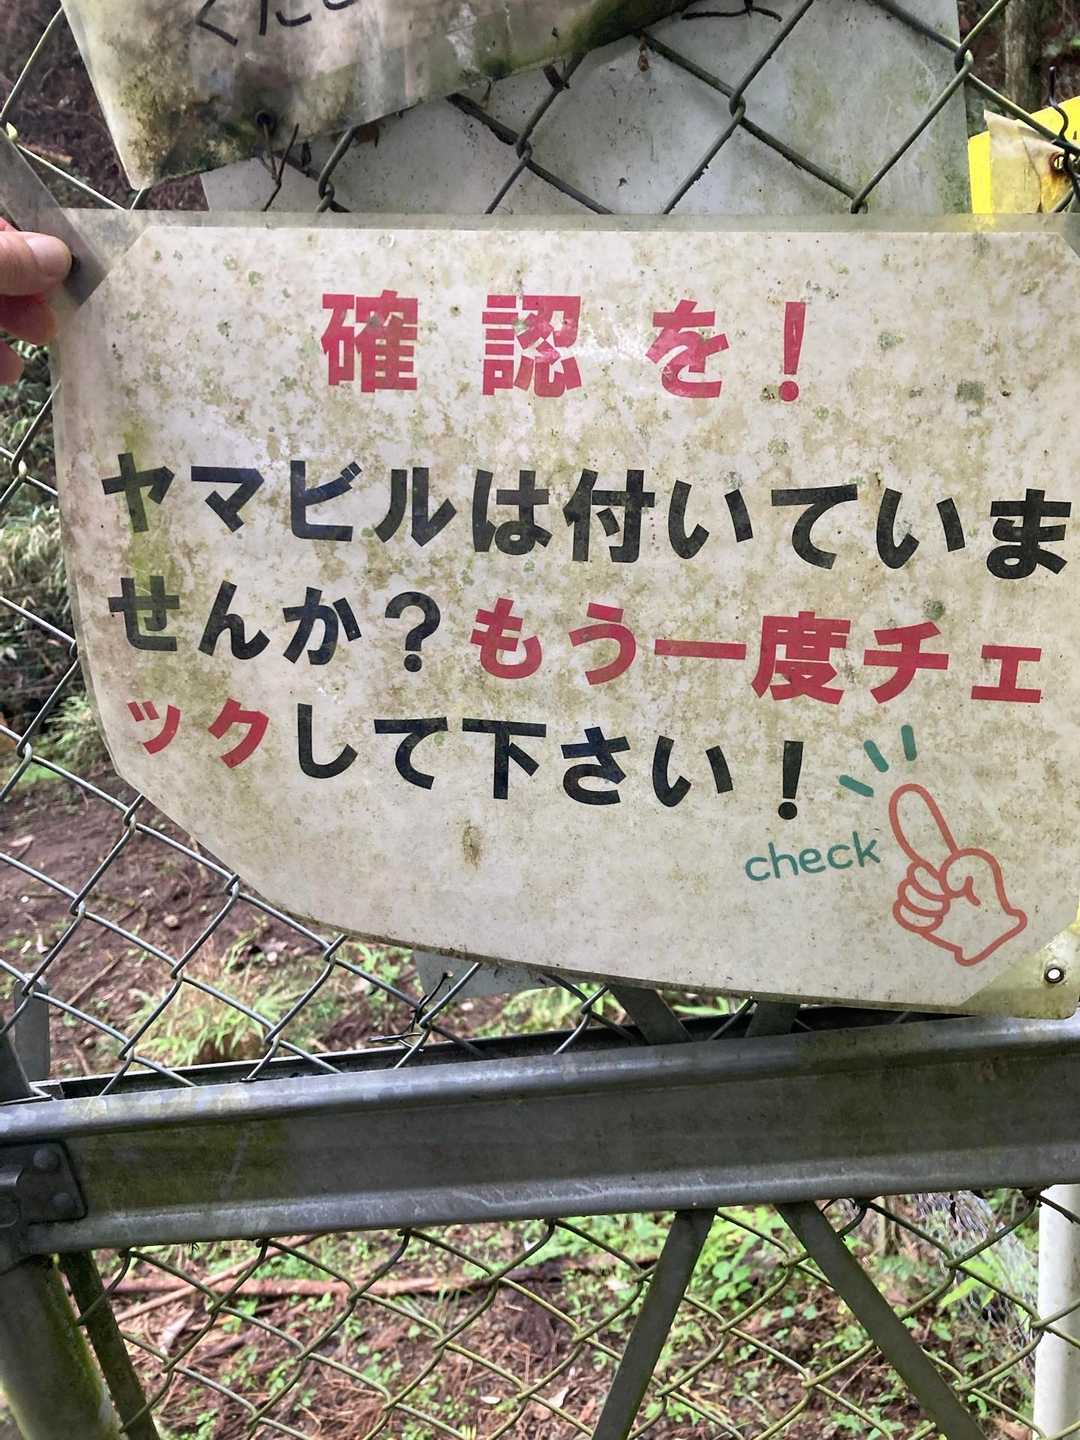 確認を！
ヤマビルは付いていま
せんか？もう一度チェ
ックして下さい！
check